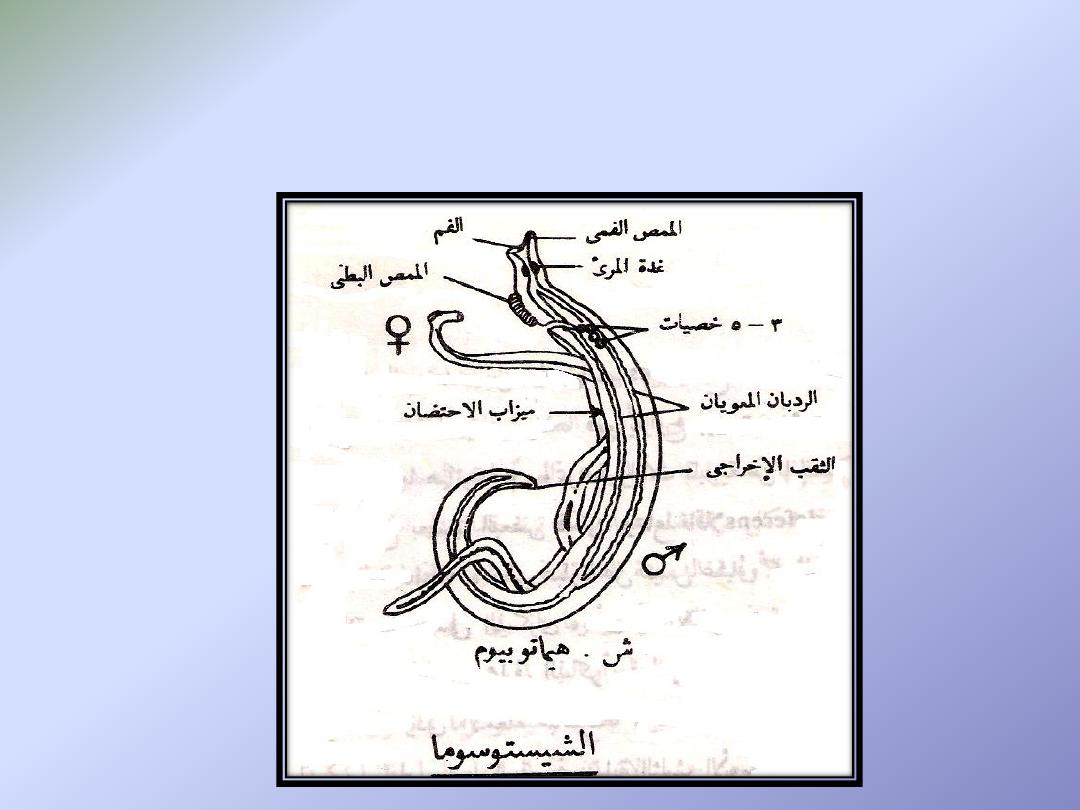 الممص الفمى
الفم
غدة المرئ
الممص البطنى
٣ – ٥ خصيات
♀
الردبان المعويان
ميزاب الاحتضان
الثقب الإخراجى
♂
ش . هيماتوبيوم
الشيستوسوما